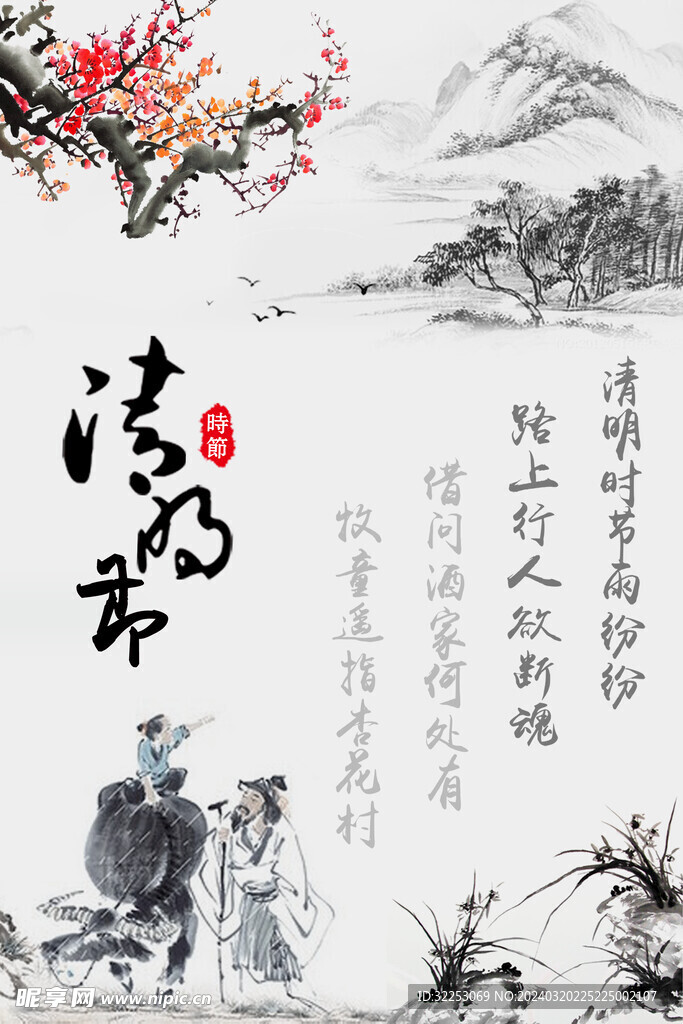 清明节
時節
清明时节雨纷纷
路上行人欲断魂
借问酒家何处有
牧童遥指杏花村
昵享网 www.nipic.cn
ID:32253069 NO:20240320225225002107